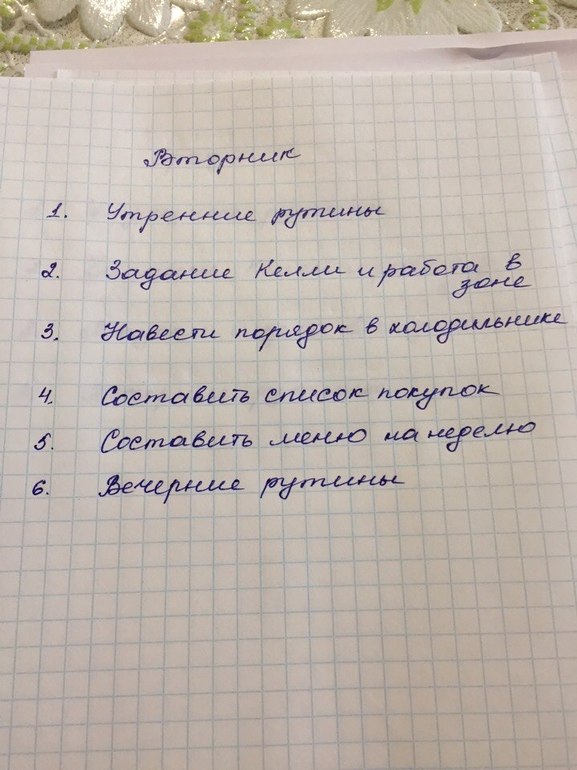 Вторник
1. Утренние рутины
2. Задание Келли и работа в
зоне
3. Навести порядок в холодильнике
4. Составить список покупок
5. Составить меню на неделю
6. Вечерние рутины